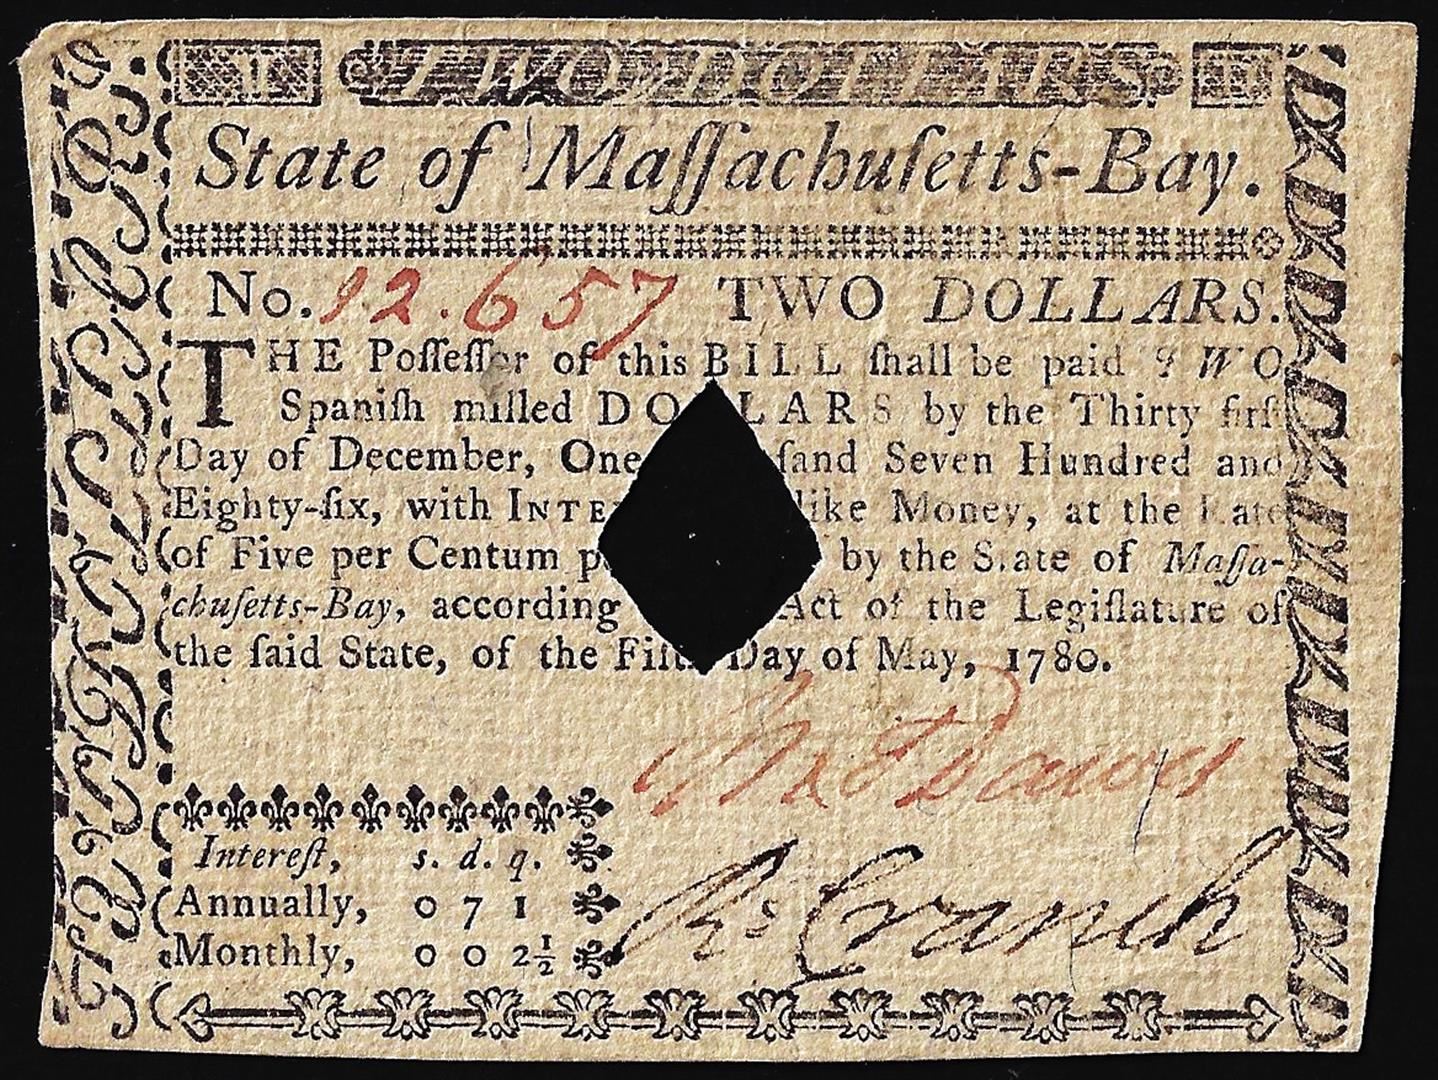 TWO DOLLARS
State of Maſſachuſetts-Bay.
No. 12.657 TWO DOLLARS.
THE Poſſeſſor of this BILL ſhall be paid TWO
Spaniſh milled DO LARS by the Thirty firſt
Day of December, One ſand Seven Hundred and
Eighty-ſix, with INTE like Money, at the Rate
of Five per Centum p by the State of Maſſa-
chuſetts-Bay, according Act of the Legiſlature of
the ſaid State, of the Fifth Day of May, 1780.
Thos Dawes
Intereſt, s. d. q.
Annually, 0 7 1
Monthly, 0 0 2½
Rd Cranch